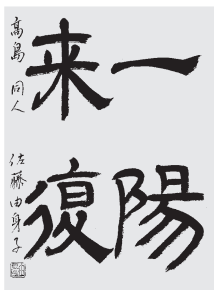 一陽
来復
高島 同人 佐藤由身子